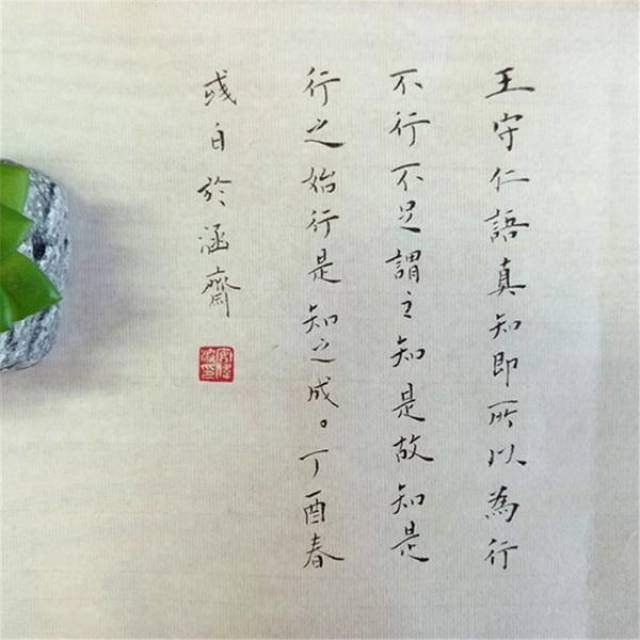 王守仁語真知即所以為行
不行不足謂之知是故知是
行之始行是知之成。丁酉春
彧白於涵齋